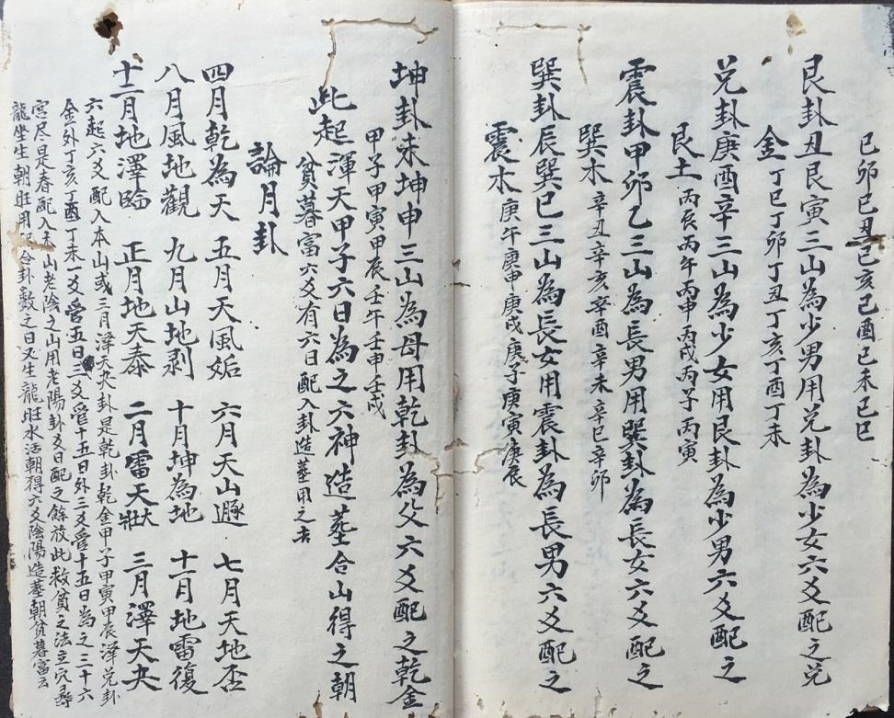 己卯己丑己亥己酉己未己巳
艮卦丑艮寅三山為少男用兌卦為少女六爻配之兌
金丁巳丁卯丁丑丁亥丁酉丁未
兌卦庚酉辛三山為少女用艮卦為少男六爻配之
艮土丙辰丙午丙申丙戌丙子丙寅
震卦甲卯乙三山為長男用巽卦為長女六爻配之
巽木辛丑辛亥辛酉辛未辛巳辛卯
巽卦辰巽巳三山為長女用震卦為長男六爻配之
震木庚午庚申庚戌庚子庚寅庚辰
坤卦未坤申三山為母用乾卦為父六爻配之乾金
甲子甲寅甲辰壬午壬申壬戌
此起渾天甲子六日為之六神造塟合山得之朝
貧暮富六爻有六日配入卦造塟用之吉
論月卦
四月乾為天 五月天風姤 六月天山遯 七月天地否
八月風地觀 九月山地剥 十月坤為地 十一月地雷復
十二月地澤臨 正月地天泰 二月雷天大壯 三月澤天夬
六起六爻配入本山或三月澤天夬卦是乾卦乾金甲子甲寅甲辰澤兌卦
金外丁亥丁酉丁未一爻管五日三爻管十五日外三爻管十五日為之三十六
宮尽是春配入本山老陰之山用老陽卦爻日配之餘放此救貧之法立穴尋
龍坐生朝旺用合卦数之日又生龍旺水活朝得六爻陰陽造塟朝貧暮富云